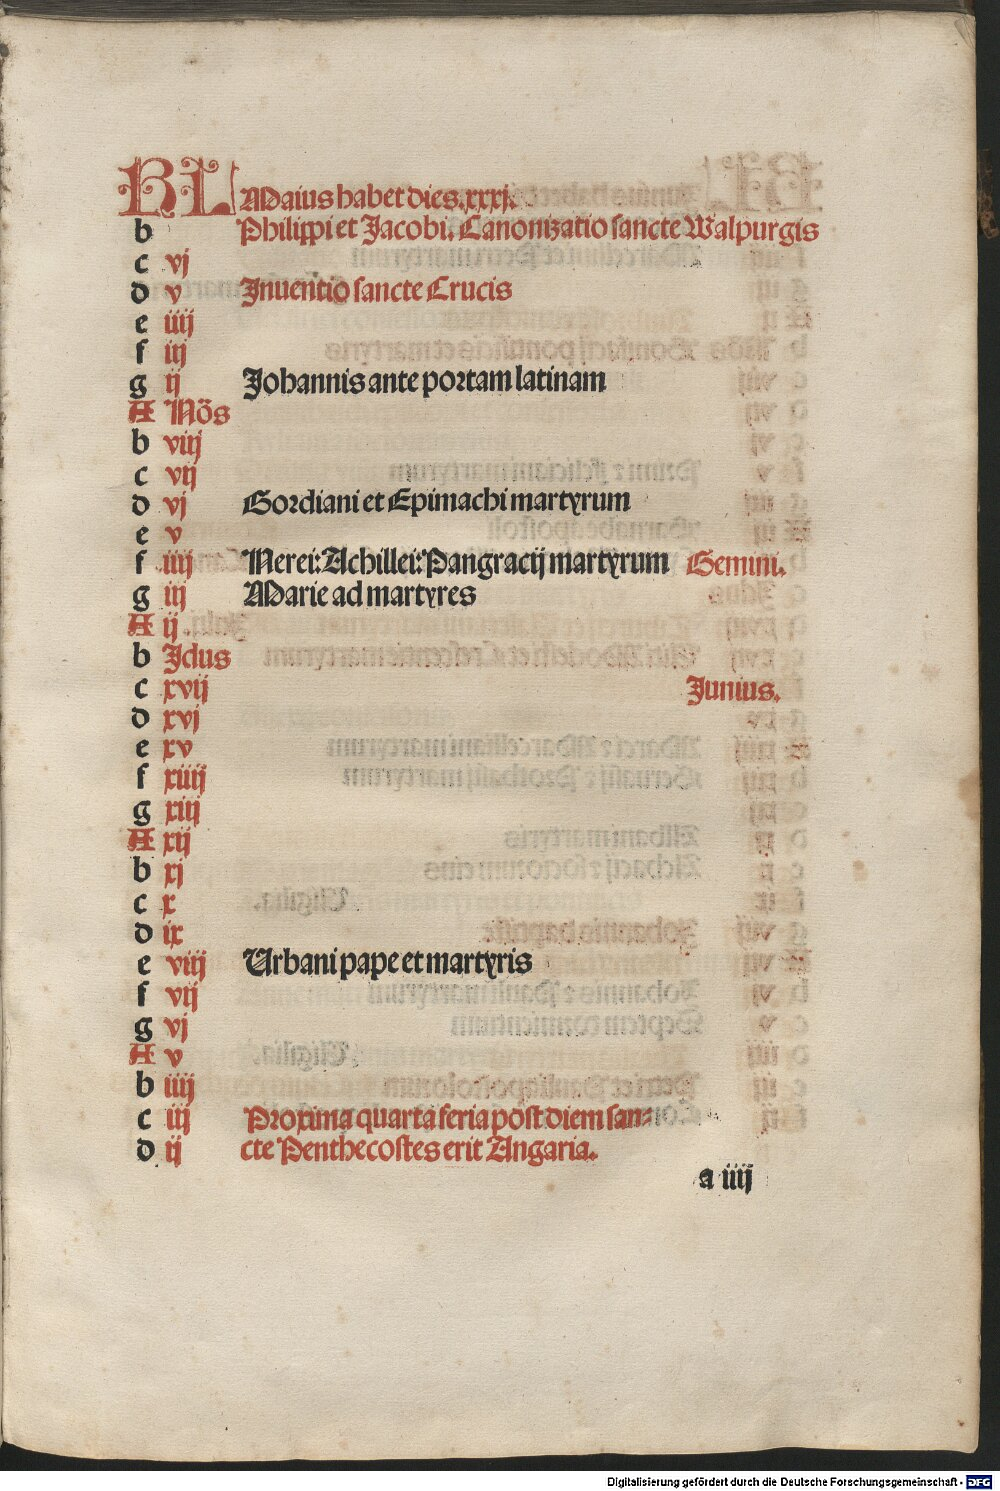 KL Maius habet dies.xxxj.
b Philippi et Jacobi. Canonizatio sancte Walpurgis
c vj
d v Inuentio sancte Crucis
e iiij
f iij
g ij Johannis ante portam latinam
A Nōs
b viij
c vij
d vj Gordiani et Epimachi martyrum
e v
f iiij Nerei: Achillei: Pangracij martyrum Gemini.
g iij Marie ad martyres
A ij
b Idus
c xvij Junius.
d xvj
e xv
f xiiij
g xiij
A xij
b xj
c x
d ix
e viij Urbani pape et martyris
f vij
g vj
A v
b iiij
c iij Proxima quarta feria post diem san-
d ij cte Penthecostes erit Angaria.
a iiij
Digitalisierung gefördert durch die Deutsche Forschungsgemeinschaft - DFG